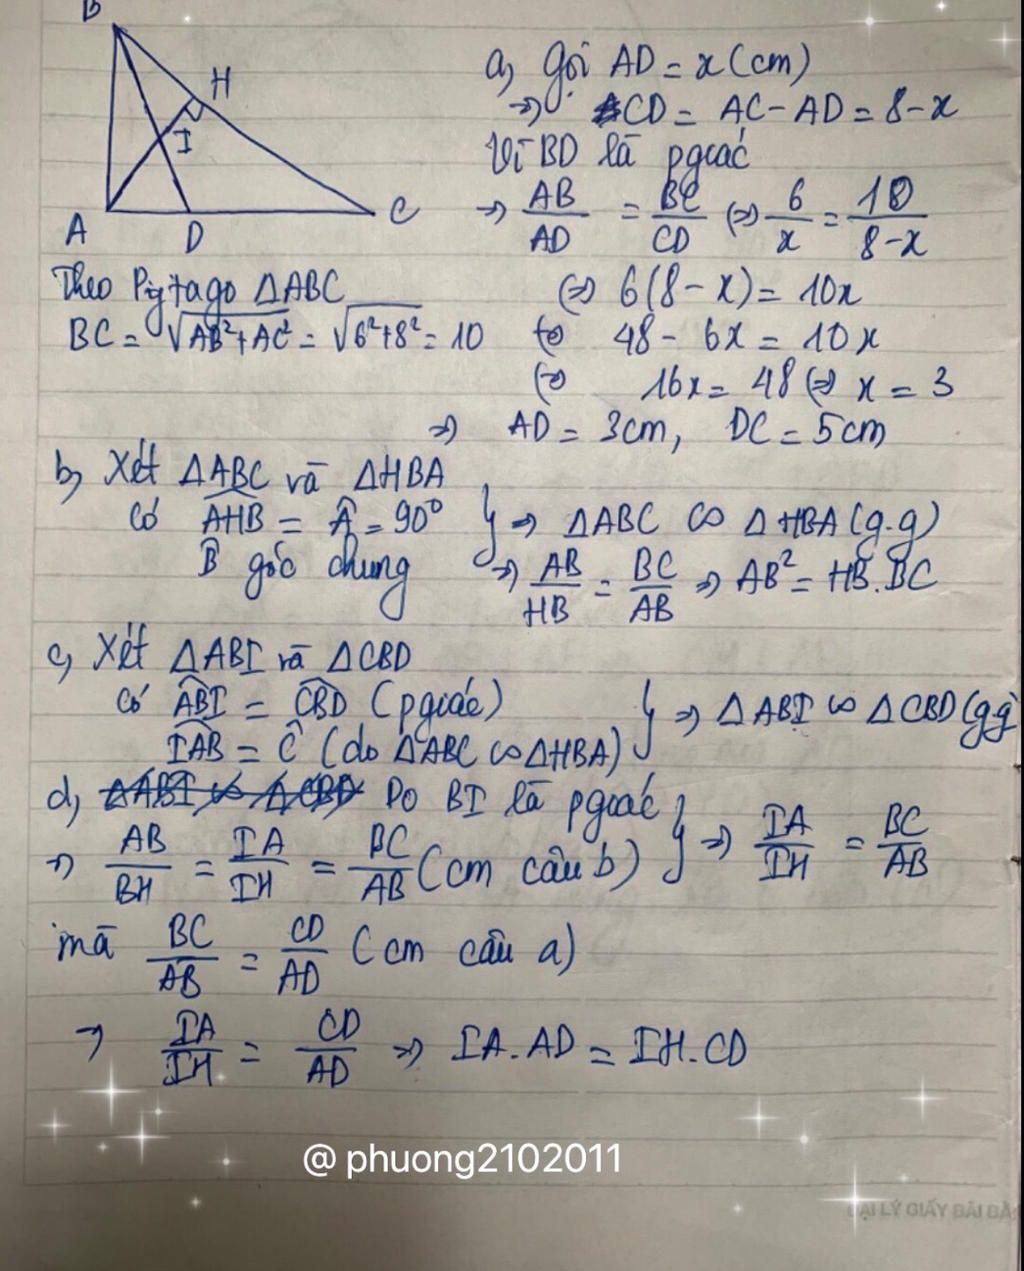 B
H
I
A
D
C
a, Gọi AD = x (cm)
=> CD = AC - AD = 8 - x
Vì BD là pgiác
=> AB/AD = BC/CD (=) 6/x = 10/8-x
(=) 6(8 - x) = 10x
(=) 48 - 6x = 10x
(=) 16x = 48 (=) x = 3
=> AD = 3cm, DC = 5cm
Theo Pytago ΔABC
BC = √AB²+AC² = √6²+8² = 10
b, Xét ΔABC và ΔHBA
Có AHB = Â = 90°
B̂ góc chung
} => ΔABC ∽ ΔHBA (g.g)
=> AB/HB = BC/AB => AB² = HB.BC
c, Xét ΔABI và ΔCBD
Có ABI = CBD (pgiác)
IAB = Ĉ (do ΔABC ∽ ΔHBA)
} => ΔABI ∽ ΔCBD (gg)
d, ΔABI ∽ ΔCBD Do BI là pgiác
=> AB/BH = IA/IH = BC/AB (cm câu b) } => IA/IH = BC/AB
mà BC/AB = CD/AD (cm câu a)
=> IA/IH = CD/AD => IA.AD = IH.CD
@ phuong2102011
ĐẠI LÝ GIẤY BÃI BẰ